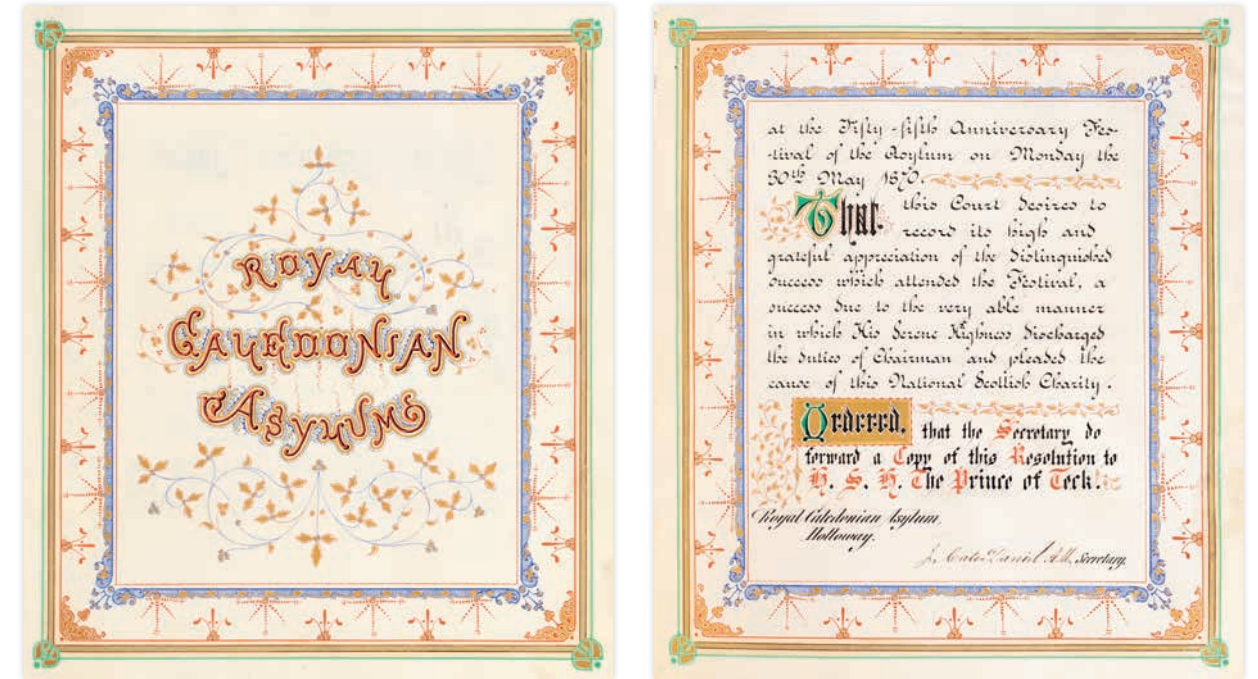 ROYAL
CALEDONIAN
ASYLUM
at the Fifty-fifth Anniversary Fes-
-tival of the Asylum on Monday the
30th May 1870.
That this Court desires to
record its high and
grateful appreciation of the distinguished
success which attended the Festival, a
success due to the very able manner
in which His Serene Highness discharged
the duties of Chairman and pleaded the
cause of this National Scottish Charity.
Ordered, that the Secretary do
forward a Copy of this Resolution to
H. S. H. The Prince of Teck.
Royal Caledonian Asylum,
Holloway.
Secretary.